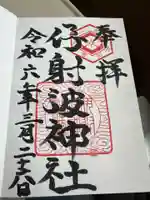 奉拝
伊射波神社
令和六年三月二十六日